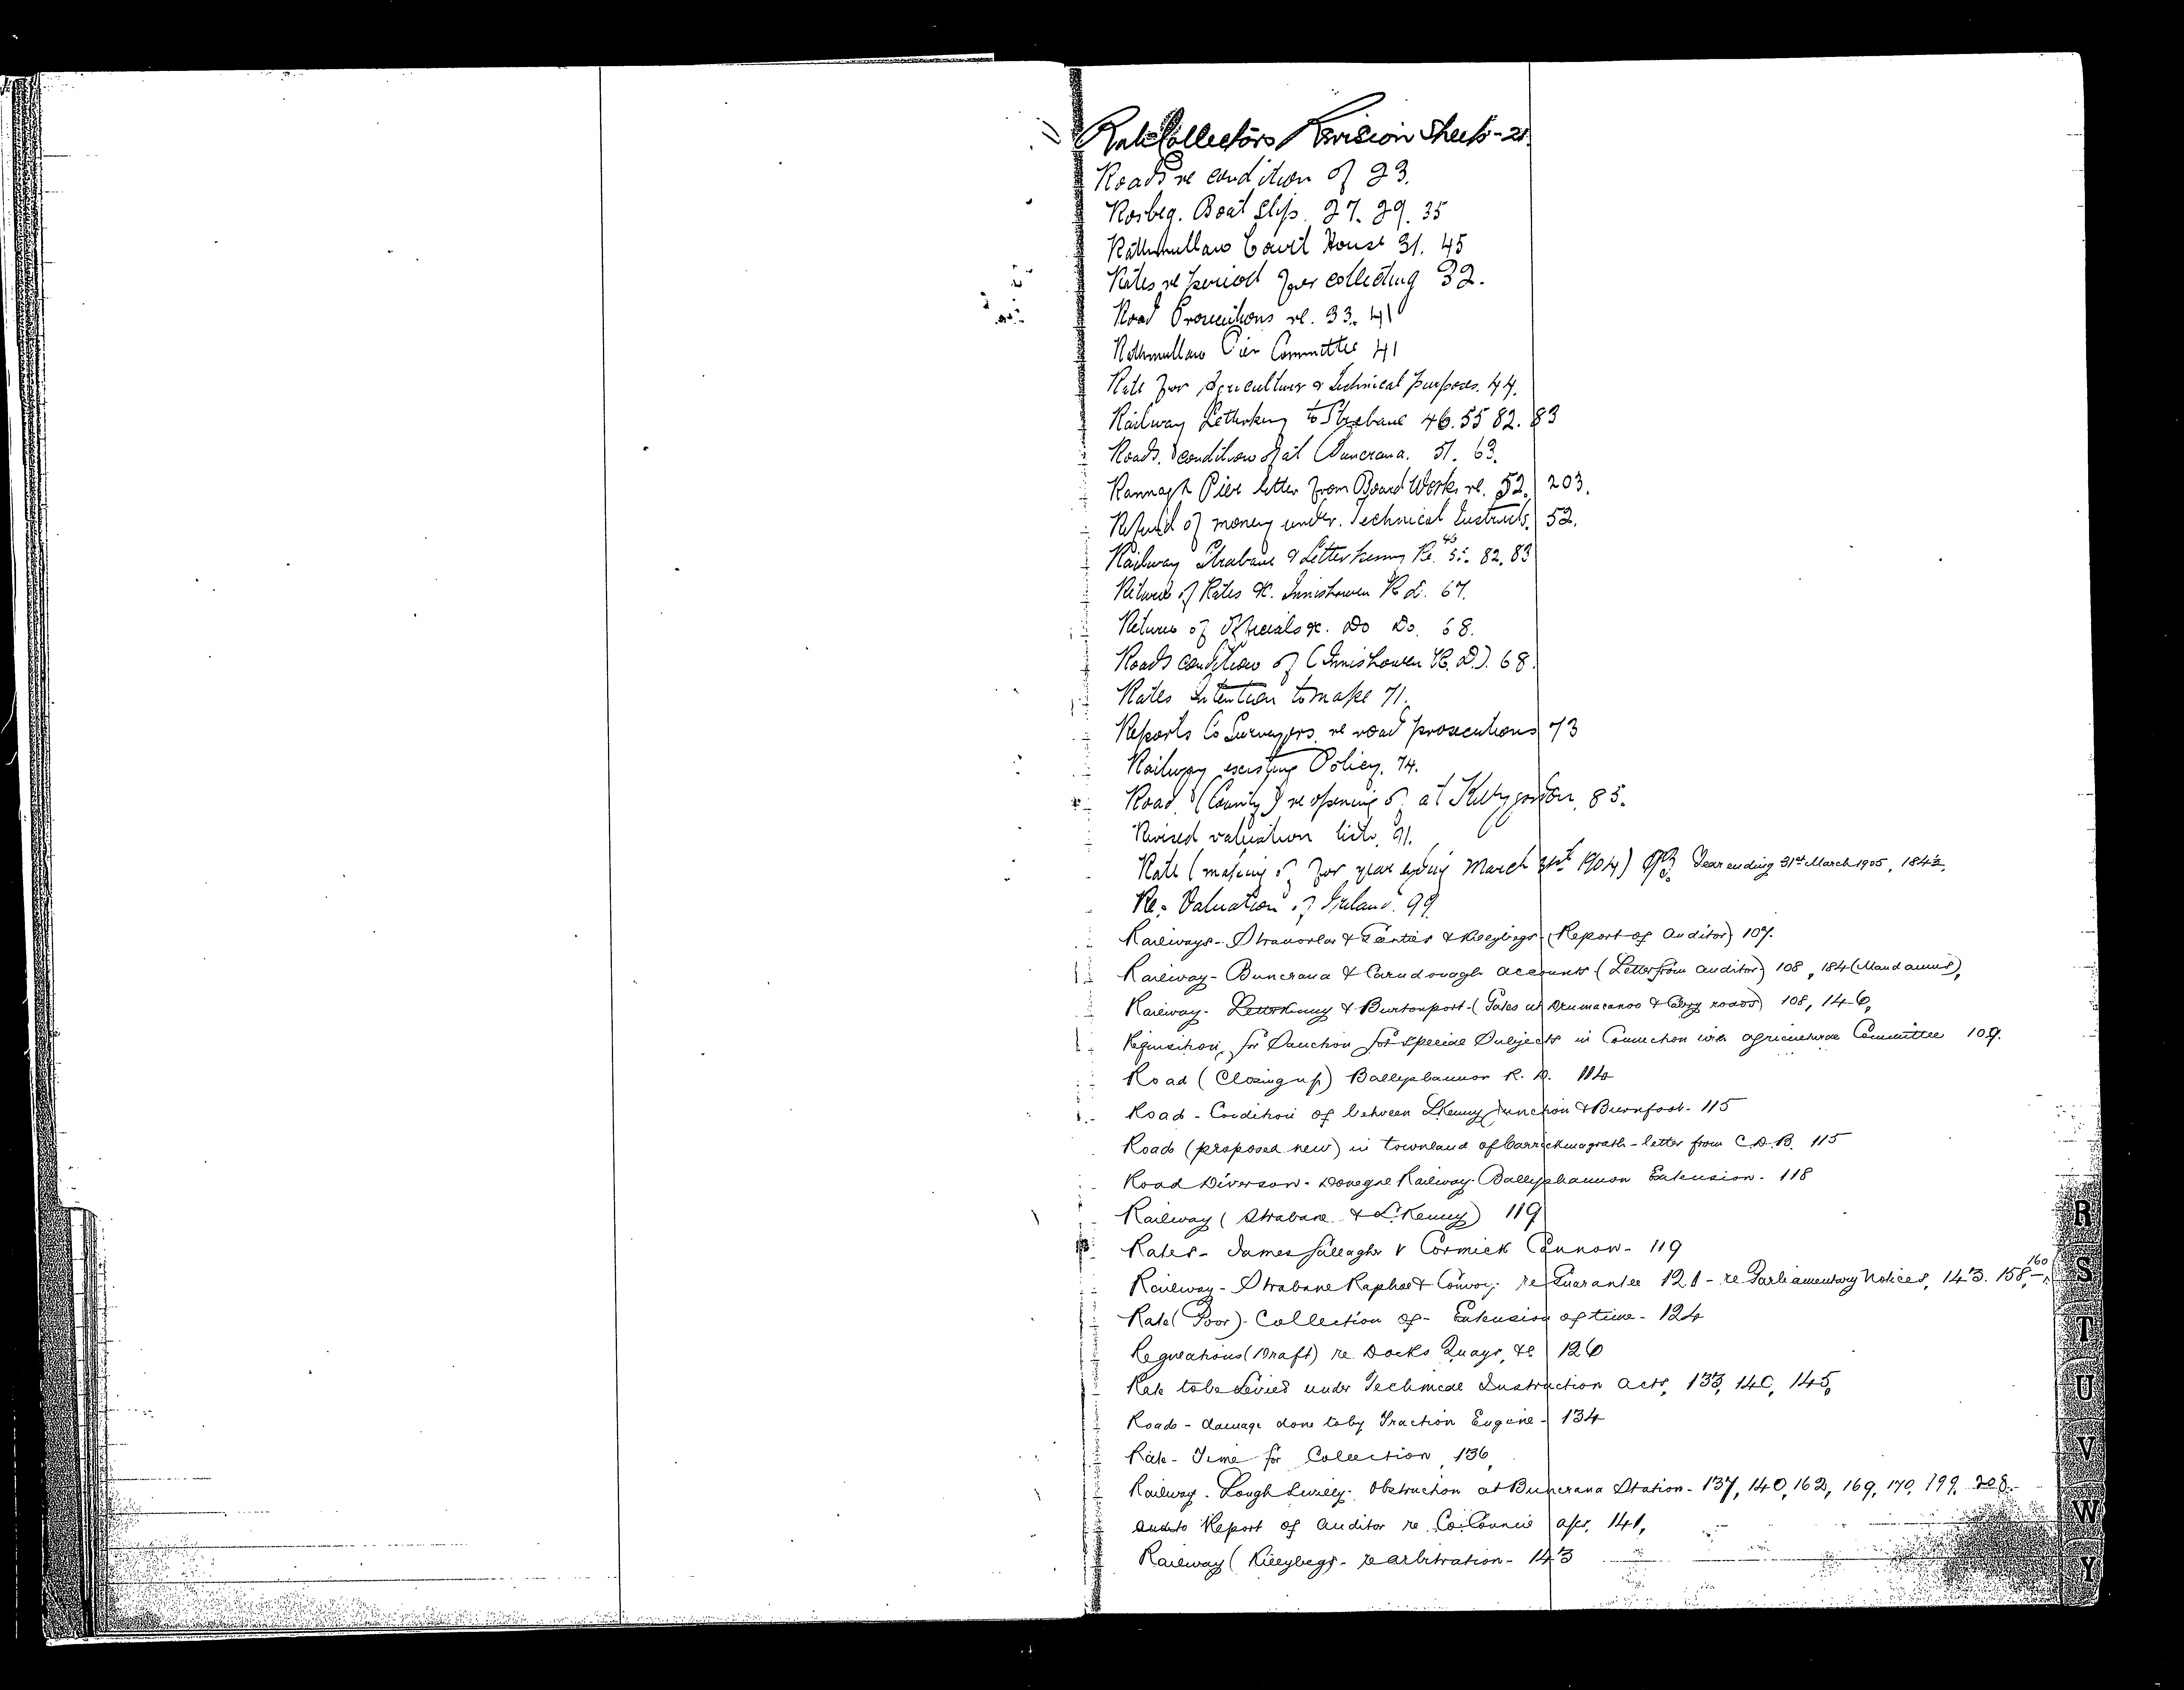 Rate Collectors Revision Sheets - 21.
Roads re condition of 23.
Rosbeg. Boat Slip. 27. 29. 35
Rathmullan Court House 31. 45
Rates re period for collecting 32.
Road Prosecutions re. 33. 41
Rathmullan Pier Committee 41
Rate for Agriculture & Technical purposes. 44.
Railway Letterkenny to Strabane 46. 55 82. 83
Roads. condition of at Buncrana. 51. 63.
Rannagh Pier letter from Board Works re. 52. 203.
Refund of money under. Technical Instructs. 52.
Railway Strabane & Letterkenny Re. 46 55. 82. 83
Return of Rates &c. Innishowen R D. 67.
Return of Officials &c. Do Do. 68.
Roads condition of (Innishowen R. D.). 68.
Rates Intention to make 71.
Reports Co Surveyors. re road prosecutions 73
Railway existing Policy. 74.
Road (County) re opening of at Killygordon. 85.
Revised valuation lists. 91.
Rate (making of for year ending March 31st 1904) 93. Year ending 31st March 1905, 184½.
Re. Valuation of Ireland. 99.
Railways - Stranorlar & Glenties & Killybegs - (Report of Auditor) 107.
Railway - Buncrana & Carndonagh accounts (Letter from Auditor) 108, 184 (Mandamus),
Railway - Letterkenny & Burtonport - (Gates at Drumacanoo & roads) 108, 146,
Requisition, for Sanction for special Subjects in Connection with Agricultural Committee 109.
Road (Closing up) Ballyshannon R. D. 114
Road - Condition of between LKenny Junction & Burnfoot - 115
Roads (proposed new) in townland of Carrickmagrath - letter from C.D.B. 115
Road Diverson - Donegal Railway - Ballyshannon Extension - 118
Railway (Strabane & L.Kenny) 119
Rates - James Gallagher v Cormick Cannon - 119
Railway - Strabane Raphoe & Convoy - re Guarantee 121 - re Parliamentary Notices, 143. 158, 160
Rate (Poor) - Collection of - Extension of time - 124
Regulations (Draft) re Docks Quays, &c 126
Rate to be Levied under Technical Instruction Acts, 133, 140, 145,
Roads - damage done to by Traction Engine - 134
Rate - Time for Collection, 136,
Railway - Lough Swilly - Obstruction at Buncrana Station - 137, 140, 162, 169, 170, 199, 208.
Report of Auditor re Co. Council a/cs, 141,
Railway (Killybegs - re arbitration - 143
R
S
T
U
V
W
Y